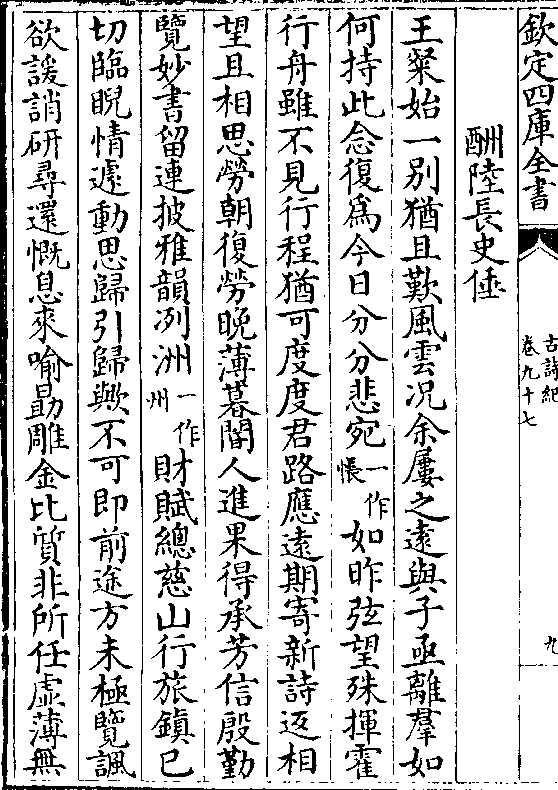 欽定四庫全書
古詩紀
卷九十七
九
酬陸長史倕
王粲始一別猶且歎風雲况余屢之遠與子亟離羣如
何持此念復爲今日分分悲宛一作悵如昨弦望殊揮霍
行舟雖不見行程猶可度度君路應遠期寄新詩返相
望且相思勞朝復勞晚薄暮閽人進果得承芳信殷勤
覽妙書留連披雅韻冽洲一作州財賦總慈山行旅鎮已
切臨睨情遽動思歸引歸歟不可即前途方未極覽諷
欲諼誚研尋還慨息來喻勗雕金比質非所任虛薄無